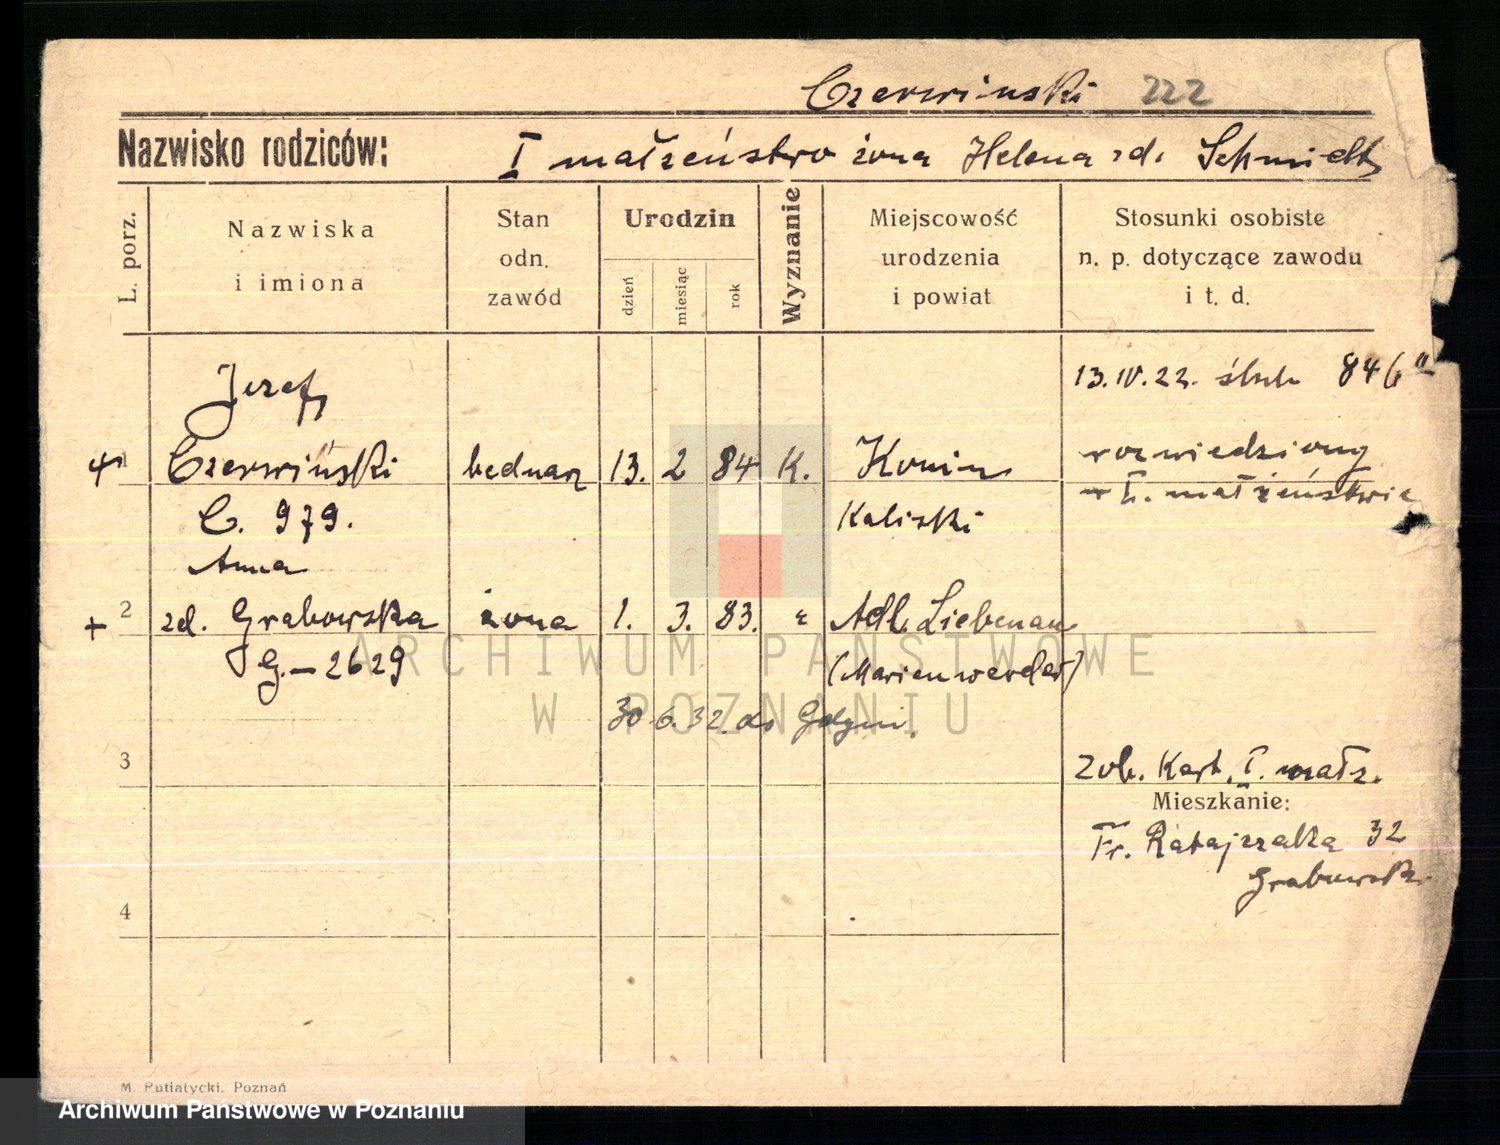 Czerwiński 222
Nazwisko rodziców:
I małżeństwo żona Helena zd. Schmidt
L. porz.
Nazwiska
i imiona
Stan
odn.
zawód
Urodzin
dzień
miesiąc
rok
Wyznanie
Miejscowość
urodzenia
i powiat
Stosunki osobiste
n. p. dotyczące zawodu
i t. d.
Józef
13. IV. 22. ślub 846
1 Czerwiński bednarz 13. 2 84 K. Konin rozwiedziony
w I. małżeństwie
C. 979. Kaliski
Anna
+ 2 zd. Grabowska żona 1. 3. 83. " Adl. Liebenau
G. - 2629 (Marienwerder)
30.6.32. do Gdyni.
3
Zob. Kart. I. małż.
Mieszkanie:
Fr. Ratajczaka 32
Grabowski
4
M. Putiatycki, Poznań
ARCHIWUM PAŃSTWOWE
W POZNANIU
Archiwum Państwowe w Poznaniu